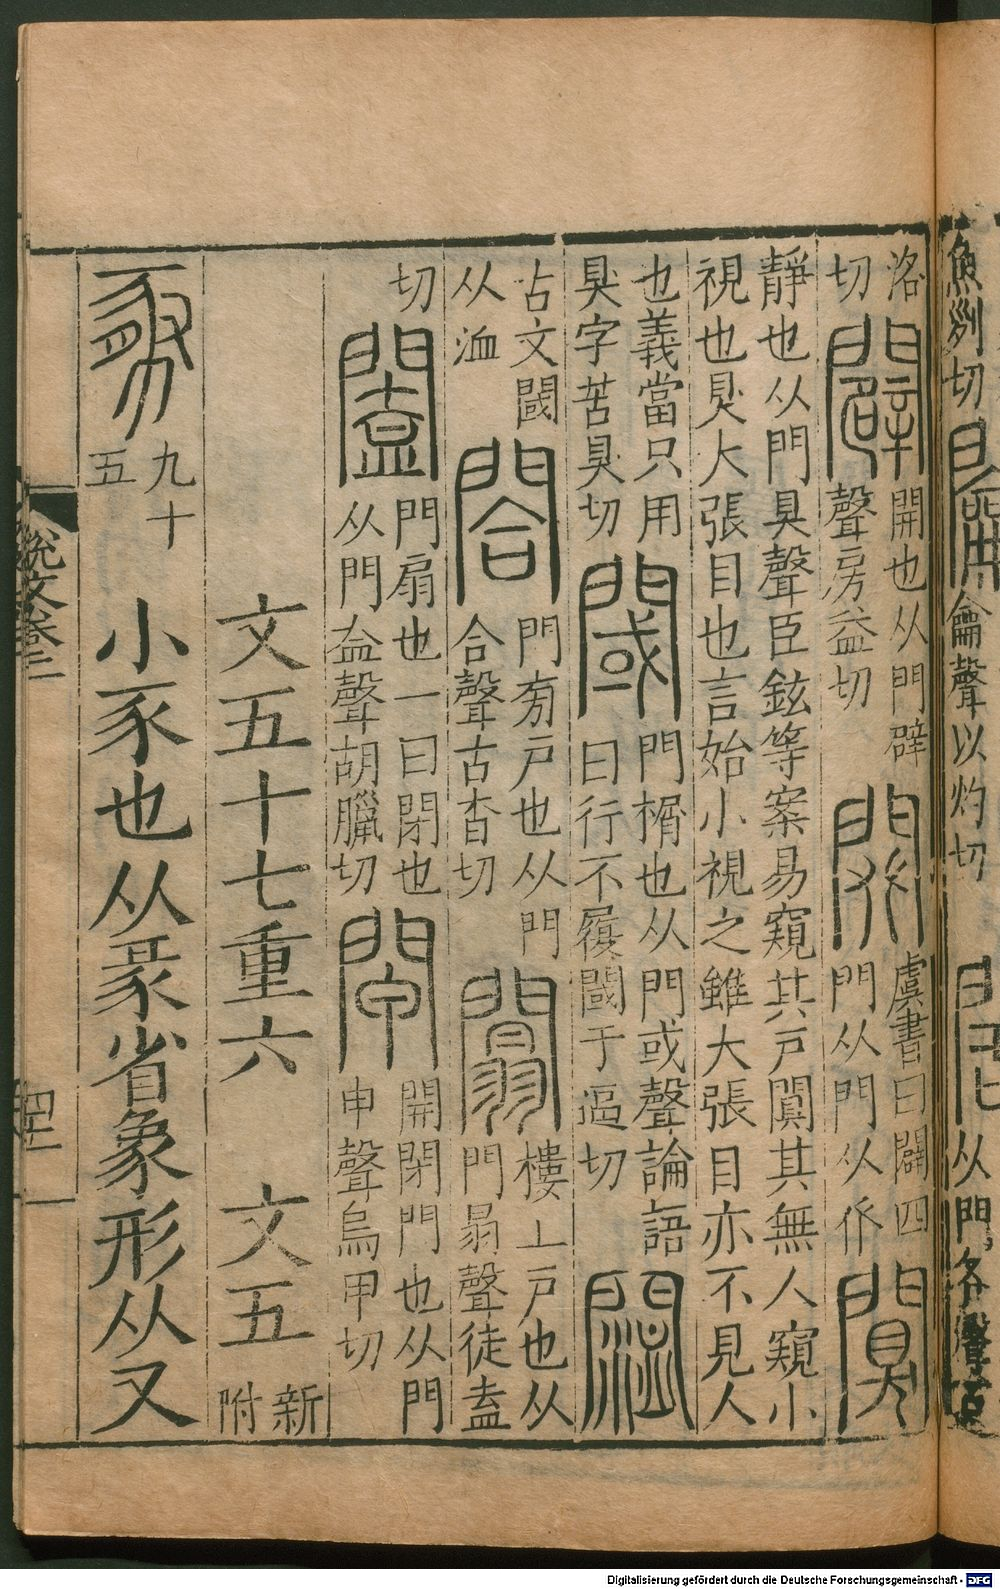 魚列切
龠聲以灼切
从門各聲古
洛
切
闢
開也从門辟
聲房益切
虞書曰闢四
門从門从𠬜
闃
靜也从門狊聲臣鉉等案易窺其戶闃其無人窺小
視也狊大張目也言始小視之雖大張目亦不見人
也義當只用
狊字苦狊切
閾
門榍也从門或聲論語
曰行不履閾于逼切
古文閾
从洫
閤
門㫄戶也从門
合聲古沓切
闒
樓上戶也从
門𦐇聲徒盍
切
闔
門扇也一曰閉也
从門盍聲胡臘切
閘
開閉門也从門
甲聲烏甲切
文五十七重六 文五 新附
九十五
小豕也从彖省象形从又
Digitalisierung gefördert durch die Deutsche Forschungsgemeinschaft - DFG